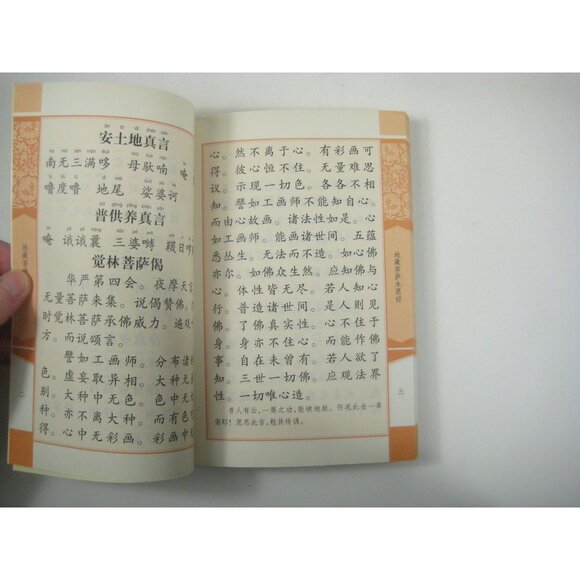 安土地真言
南无三满哆 母驮喃 唵
噜度噜 地尾 娑婆诃
普供养真言
唵 诚诚曩 三婆嚩 韈日啰
觉林菩萨偈
华严第四会。夜摩天宫
无量菩萨来集。说偈赞佛。
时觉林菩萨承佛威力。遍观
方。而说颂言。
譬如工画师。分布诸
色。虚妄取异相。大种无
别。大种中无色。色中无大
种。亦不离大种。而有色
得。心中无彩画。彩画中
地藏菩
二
心。然不离于心。有彩画可
得。彼心恒不住。无量难思
议。示现一切色。各各不相
知。譬如工画师。不能知自心。
而由心故画。诸法性如是。心
如工画师。能画诸世间。五蕴
悉从生。无法而不造。如心佛
亦尔。如佛众生然。应知佛与
心。体性皆无尽。若人知心
行。普造诸世间。是人则见
佛。了佛真实性。心不住于
身。身亦不住心。而能作佛
事。自在未曾有。若人欲了
知。三世一切佛。应观法界
性。一切唯心造。
昔人有云，一偈之功，能破地狱。何况此全一章
偈耶！愿思此言，勉共传诵。
地藏菩萨本愿经
三